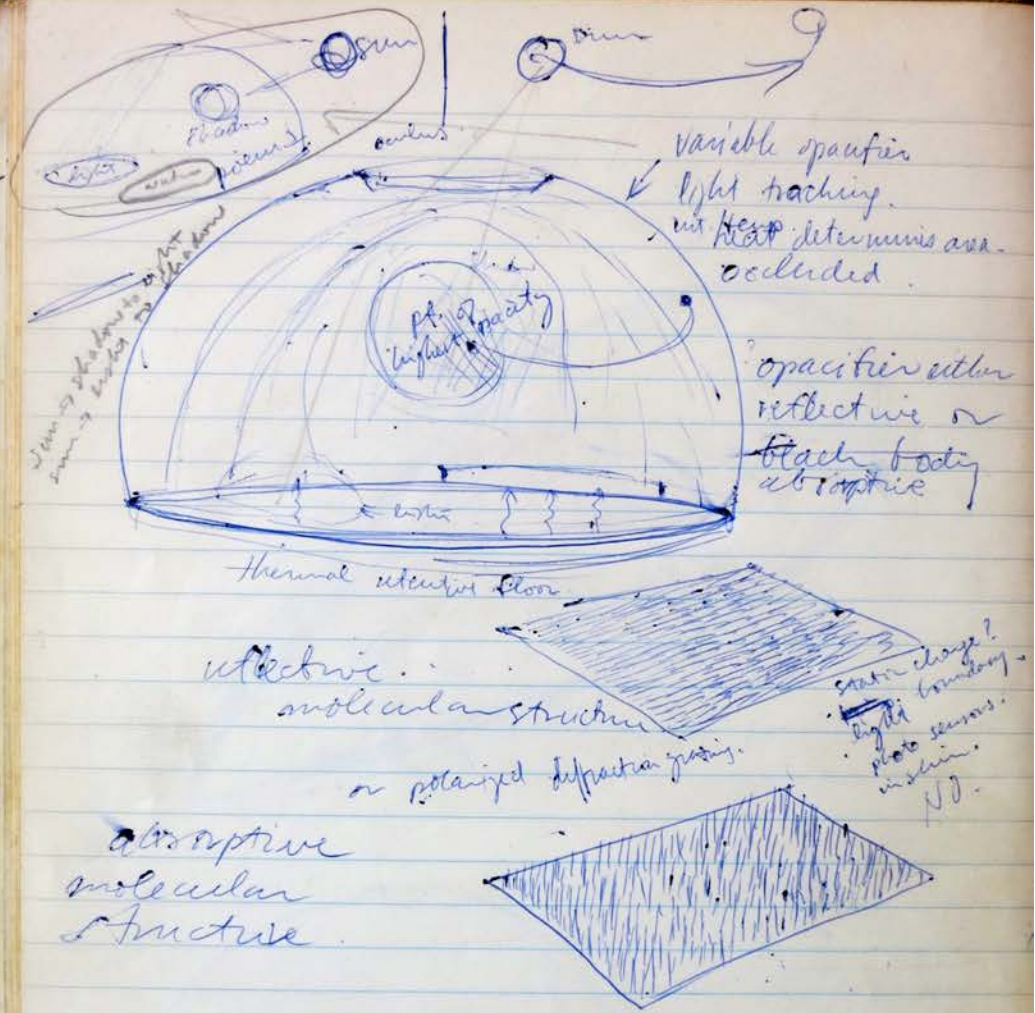 sun
shadow
light
oculus
variable opacifier
light tracking.
int temp
heat determines area
occluded.
pt. of
highest opacity
opacifier either
reflective or
black body
absorptive
thermal retentive floor
reflective.
molecular structure
or polarized defraction grating.
static charge?
light boundary.
photo sensors.
in skin.
NO.
absorptive
molecular
structure.